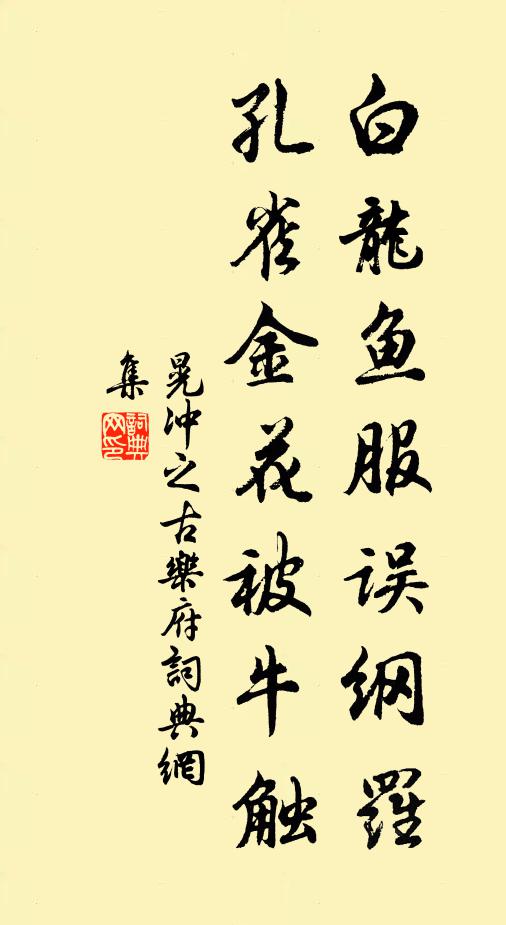 白龍鱼服误纲羅
孔雀金花被牛触
晁冲之古樂府詞典網
集
詞典网印